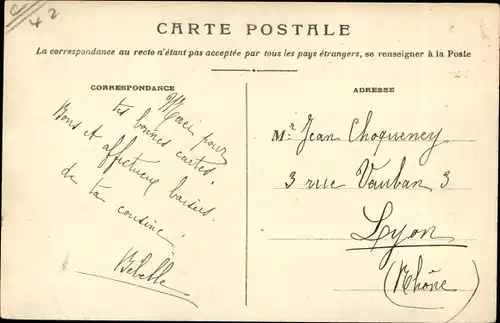 42
CARTE POSTALE
La correspondance au recto n'étant pas acceptée par tous les pays étrangers, se renseigner à la Poste
CORRESPONDANCE
Merci pour
tes bonnes cartes.
Bons et affectueux baisers
de ta cousine,
Bébelle
ADRESSE
Mr Jean Choqueney
3 rue Vauban 3
Lyon
(Rhône)